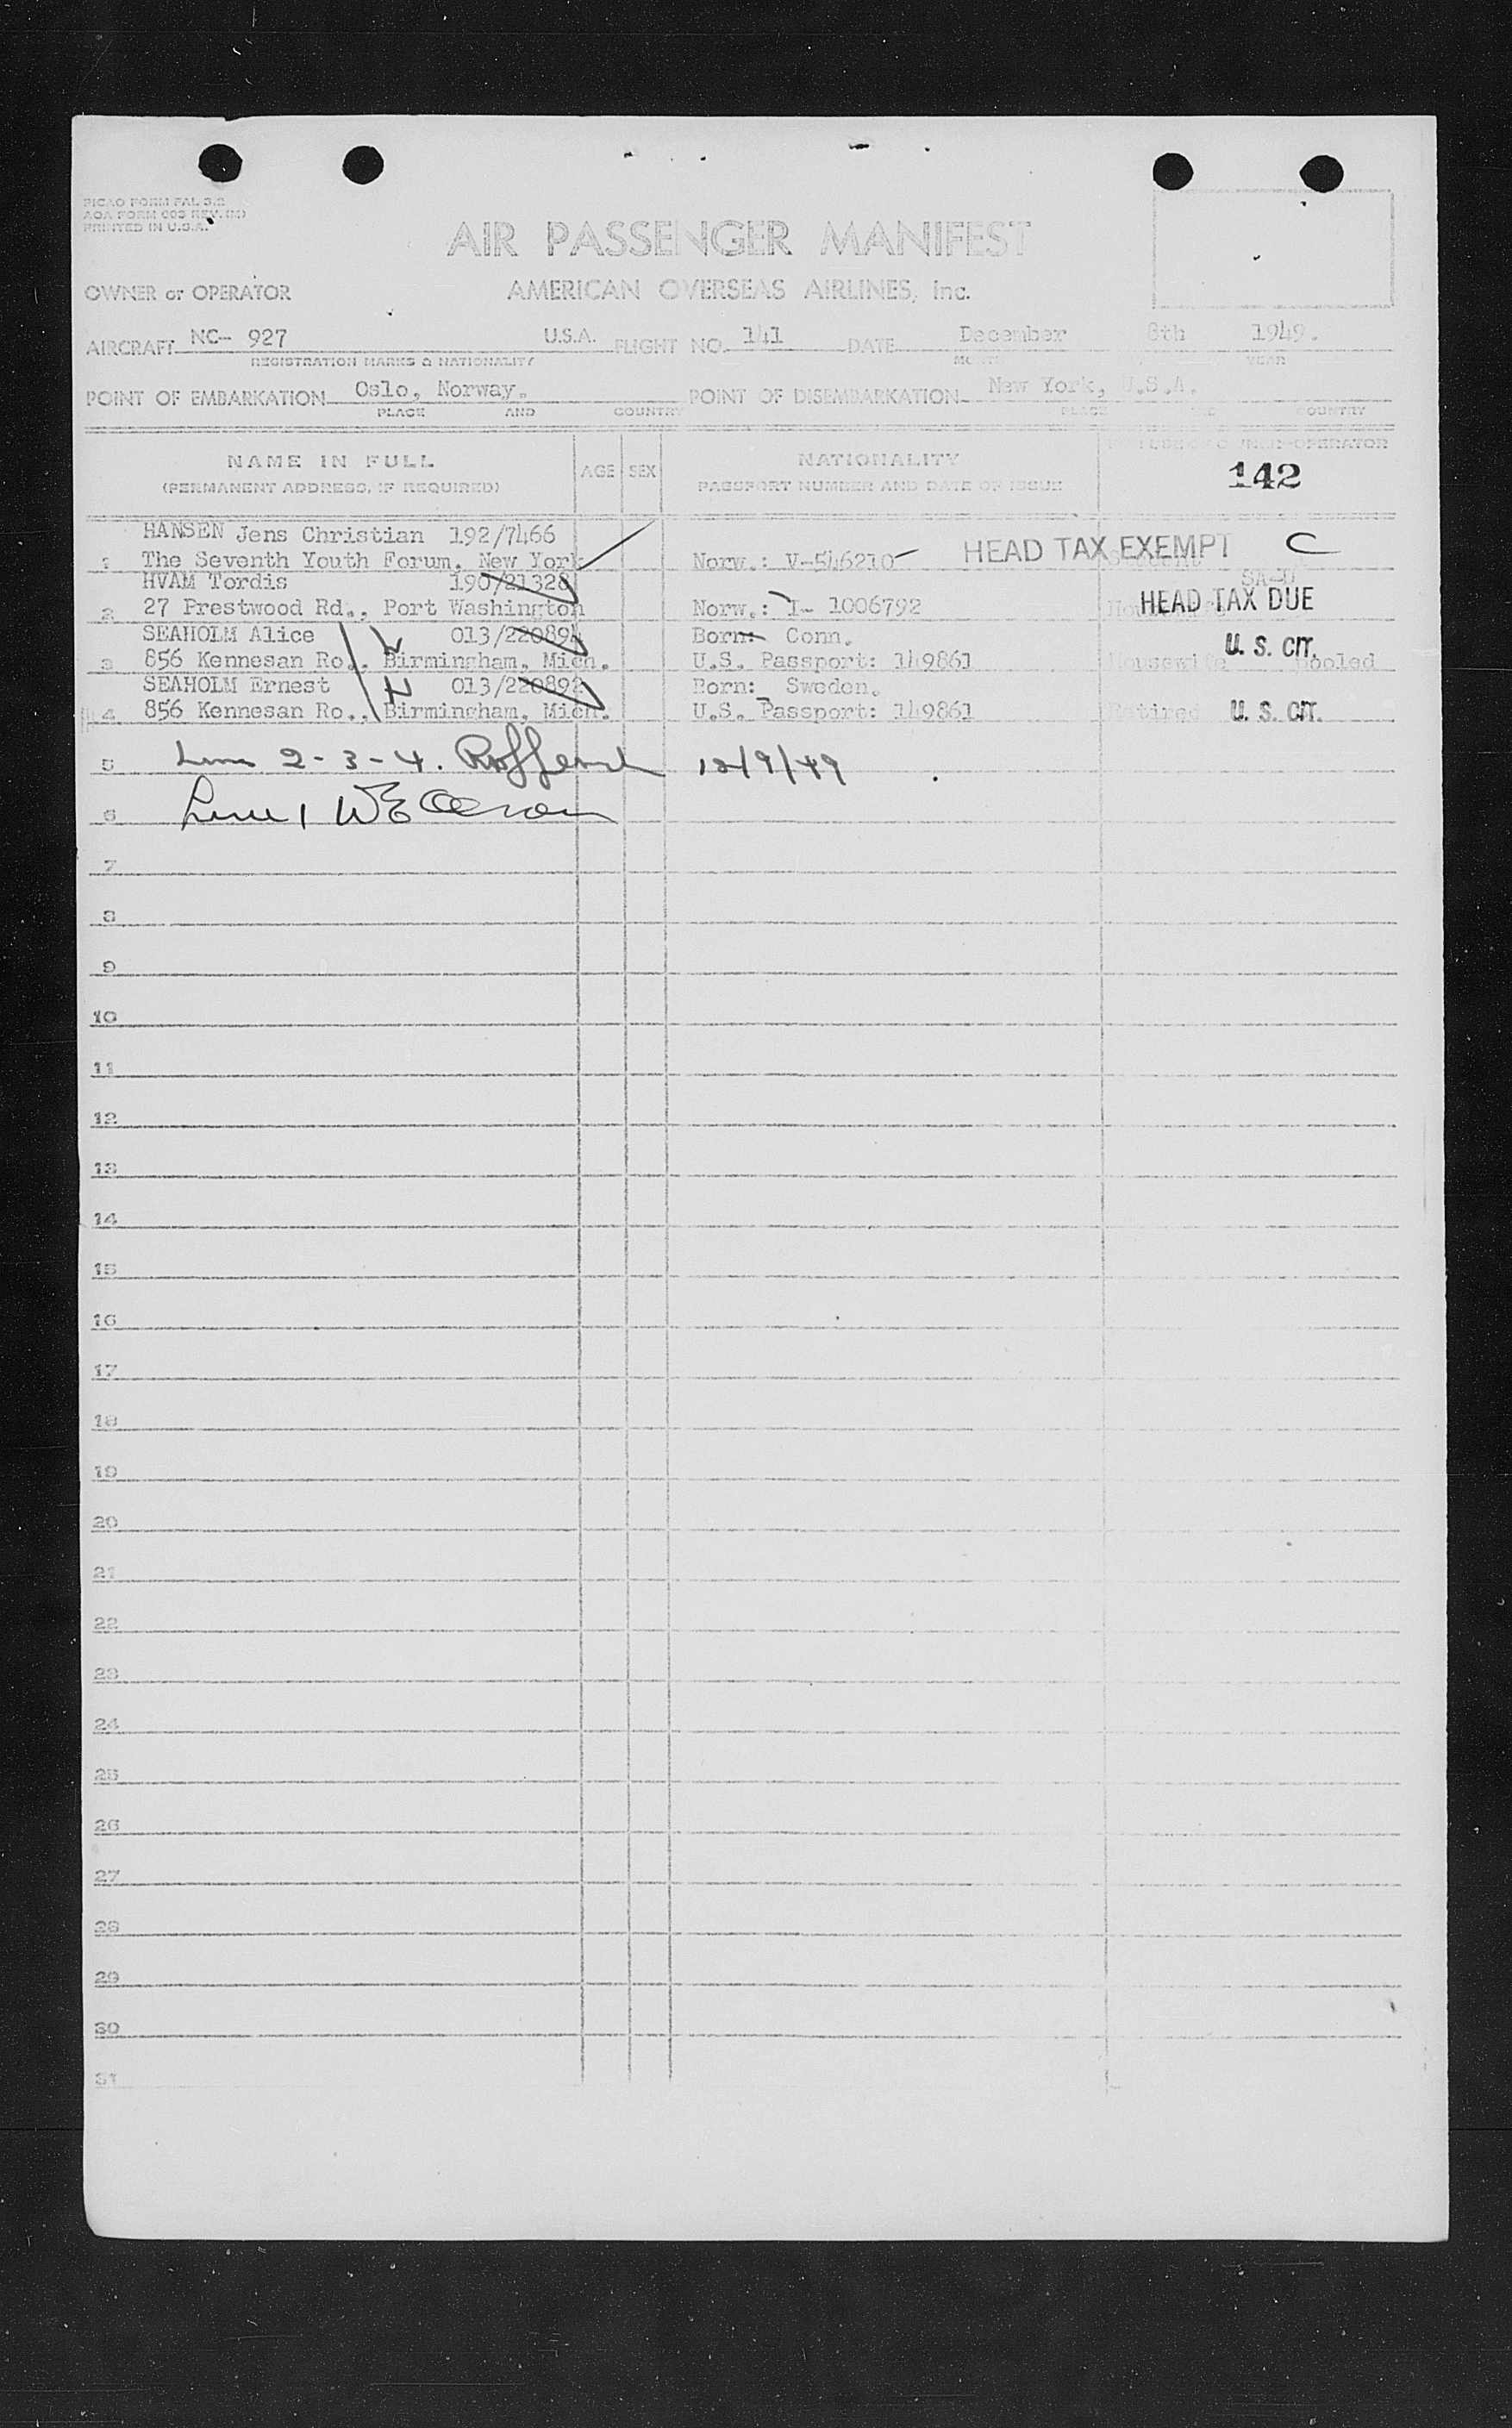 PICAO FORM FAL 3.2
AOA FORM 003 REV. (M)
PRINTED IN U.S.A.
AIR PASSENGER MANIFEST
OWNER or OPERATOR AMERICAN OVERSEAS AIRLINES, Inc.
AIRCRAFT NC- 927 U.S.A. FLIGHT NO. 141 DATE December 8th 1949.
REGISTRATION MARKS & NATIONALITY MONTH YEAR
POINT OF EMBARKATION Oslo, Norway. POINT OF DISEMBARKATION New York, U.S.A.
PLACE AND COUNTRY PLACE AND COUNTRY
NAME IN FULL AGE SEX NATIONALITY
(PERMANENT ADDRESS, IF REQUIRED) PASSPORT NUMBER AND DATE OF ISSUE 142
HANSEN Jens Christian 192/7466
1 The Seventh Youth Forum. New York Norw.: V-546210 HEAD TAX EXEMPT C
Student
HVAM Tordis 190/21328
2 27 Prestwood Rd., Port Washington Norw.: I- 1006792 HEAD TAX DUE
SEAHOLM Alice 013/220894 Born: Conn. U. S. CIT.
3 856 Kennesan Ro., Birmingham, Mich. U.S. Passport: 149861 Housewife
SEAHOLM Ernest 013/220892 Born: Sweden.
4 856 Kennesan Ro., Birmingham, Mich. U.S. Passport: 149861 Retired U. S. CIT.
5 2-3-4. 12/9/49
6 Line 1
7
8
9
10
11
12
13
14
15
16
17
18
19
20
21
22
23
24
25
26
27
28
29
30
31